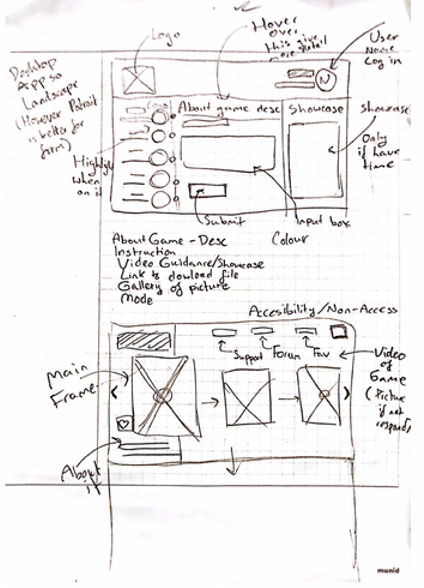 Logo
Hover over this give more detail
User Name Log in
Desktop App so Landscape (However Potrait is better for form)
Logo
About game desc
Showcase
Showcase Only if have time
Highligh when on it
Submit
Input box
Colour
About Game - Desc
Instruction
Video Guidance/Showcase
Link to dowload file
Gallery of picture
Mode
Accesibility/Non-Access
Support
Forum
Fav
Main Frame
Video of Game (Picture if not respond)
About it
munid